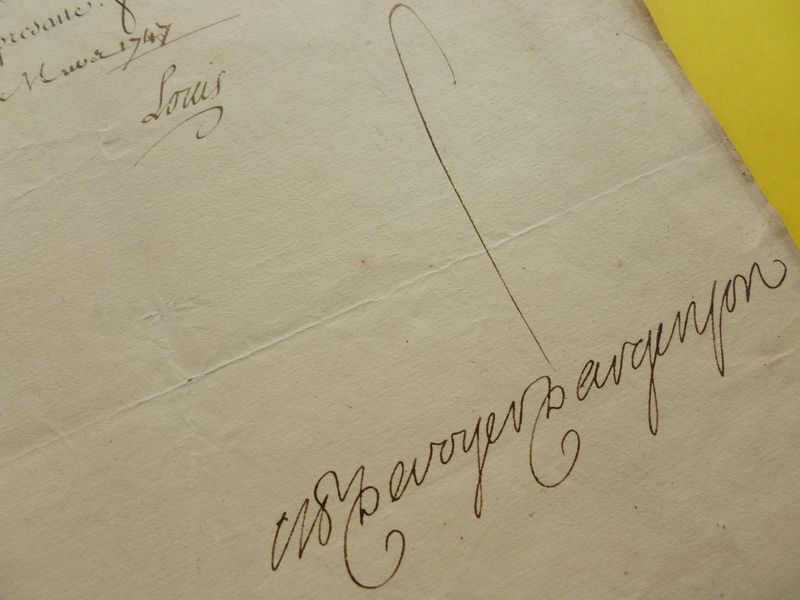 presante.
Mars 1747
Louis
M De voyer D argenson